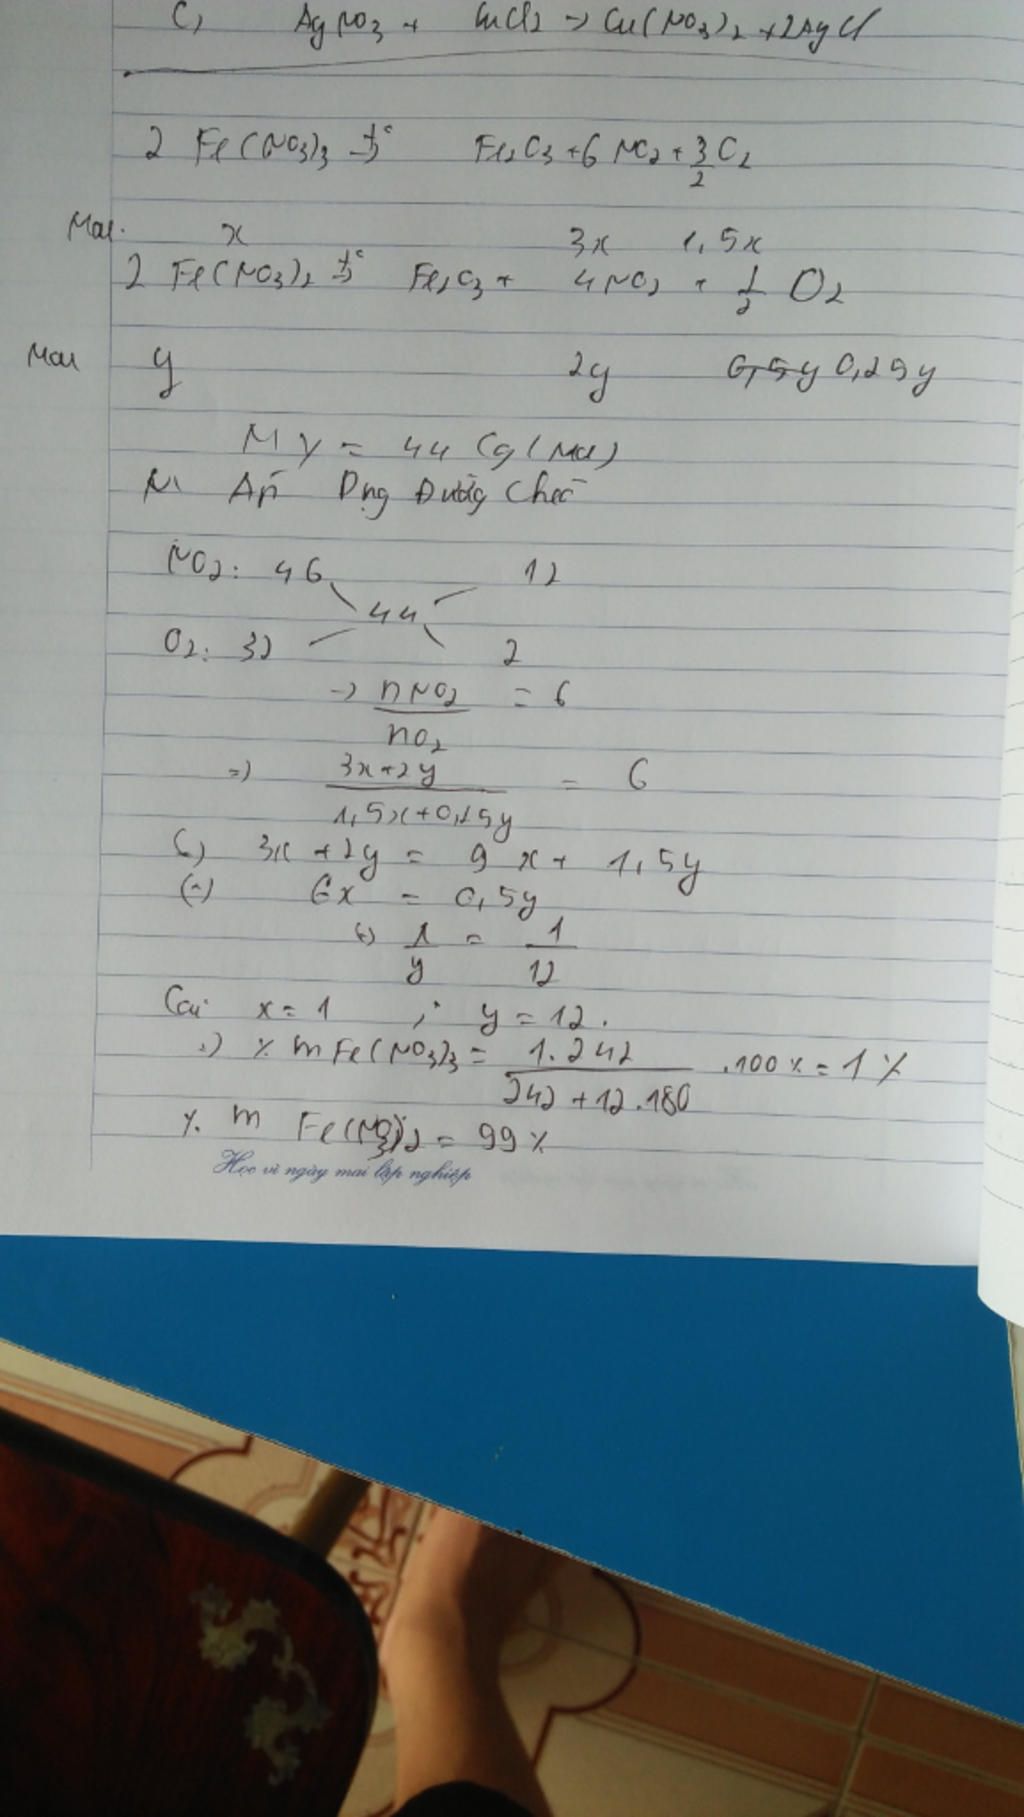 C, AgNO3 + CuCl2 → Cu(NO3)2 + 2AgCl
2 Fe(NO3)3 t°→ Fe2O3 + 6 NO2 + 3/2 O2
Mol. x 3x 1,5x
2 Fe(NO3)2 t°→ Fe2O3 + 4 NO2 + 1/2 O2
Mol y 2y 0,5y 0,25y
M y = 44 (g/mol)
Áp Dụng Đường Chéo
NO2: 46 12
44
O2: 32 2
→ nNO2/nO2 = 6
=) 3x+2y / 1,5x+0,25y = 6
(=) 3x + 2y = 9x + 1,5y
(=) 6x = 0,5y
(=) x/y = 1/12
Coi x = 1 ; y = 12.
=) % m Fe(NO3)3 = 1.242 / 242 + 12.180 .100% = 1%
% m Fe(NO3)2 = 99%
Học vì ngày mai lập nghiệp